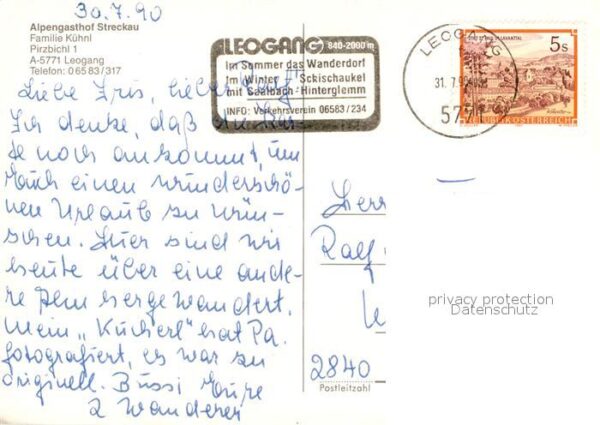 30.7.90
Alpengasthof Streckau
Familie Kühnl
Pirzbichl 1
A-5771 Leogang
Telefon: 0 65 83/317
LEOGANG 840-2000 m
Im Sommer das Wanderdorf
Im Winter Schischaukel
mit Saalbach-Hinterglemm
INFO: Verkehrsverein 06583/234
LEOGANG
31. 7. 9
5771
5s
REPUBLIK ÖSTERREICH
Liebe Iris, lieber Ralf!
Ich denke, daß die Kar-
te noch ankommt, um
Euch einen wunderschö-
nen Urlaub zu wün-
schen. Hier sind wir
heute über eine ande-
re Alm hergewandert.
Mein „Kucherl" hat Pa.
fotografiert, es war zu
originell. Bussi Eure
2 Wanderer
Herr
Ralf
2840
Postleitzahl
privacy protection
Datenschutz